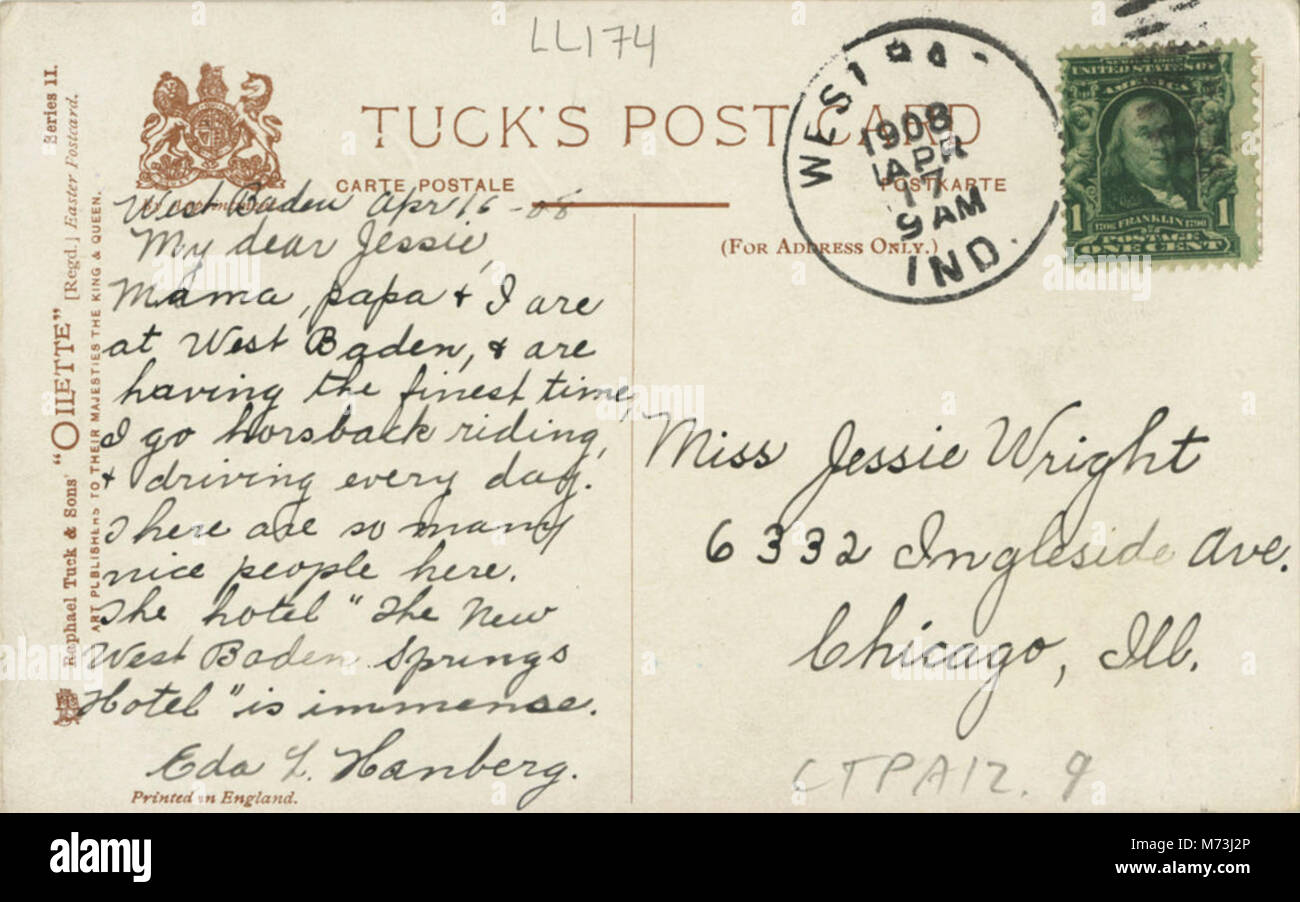 LL174
TUCK'S POST CARD
CARTE POSTALE
POSTKARTE
(FOR ADDRESS ONLY.)
WEST
1908
APR
17
9 AM
IND.
SERIES
UNITED STATES OF
AMERICA
1706 FRANKLIN 1790
1 POSTAGE 1
ONE CENT
West Baden Apr 16 - 08
My dear Jessie,
Mama, papa & I are
at West Baden, & are
having the finest time,
I go horsback riding,
& driving every day.
There are so many
nice people here.
The hotel "The New
West Baden Springs
Hotel" is immense.
Eda L. Hanberg.
Printed in England.
Miss Jessie Wright
6332 Ingleside Ave.
Chicago, Ill.
Series II.
Raphael Tuck & Sons' "OILETTE" [Regd.] Easter Postcard.
ART PUBLISHERS TO THEIR MAJESTIES THE KING & QUEEN.
alamy
Image ID: M73J2P
www.alamy.com